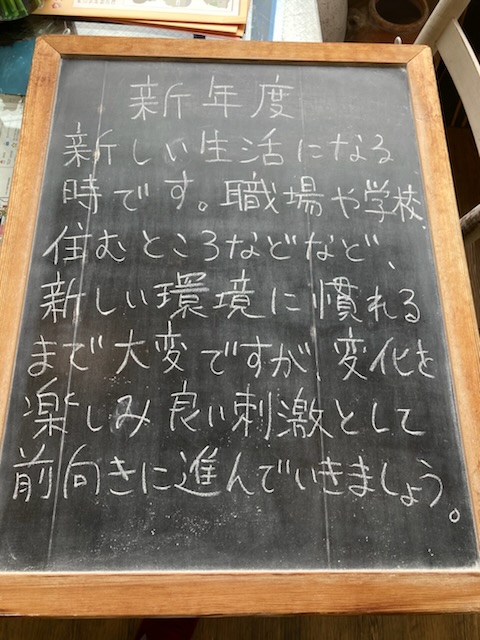 新年度
新しい生活になる
時です。職場や学校、
住むところなどなど、
新しい環境に慣れる
まで大変ですが 変化を
楽しみ良い刺激として
前向きに進んでいきましょう。